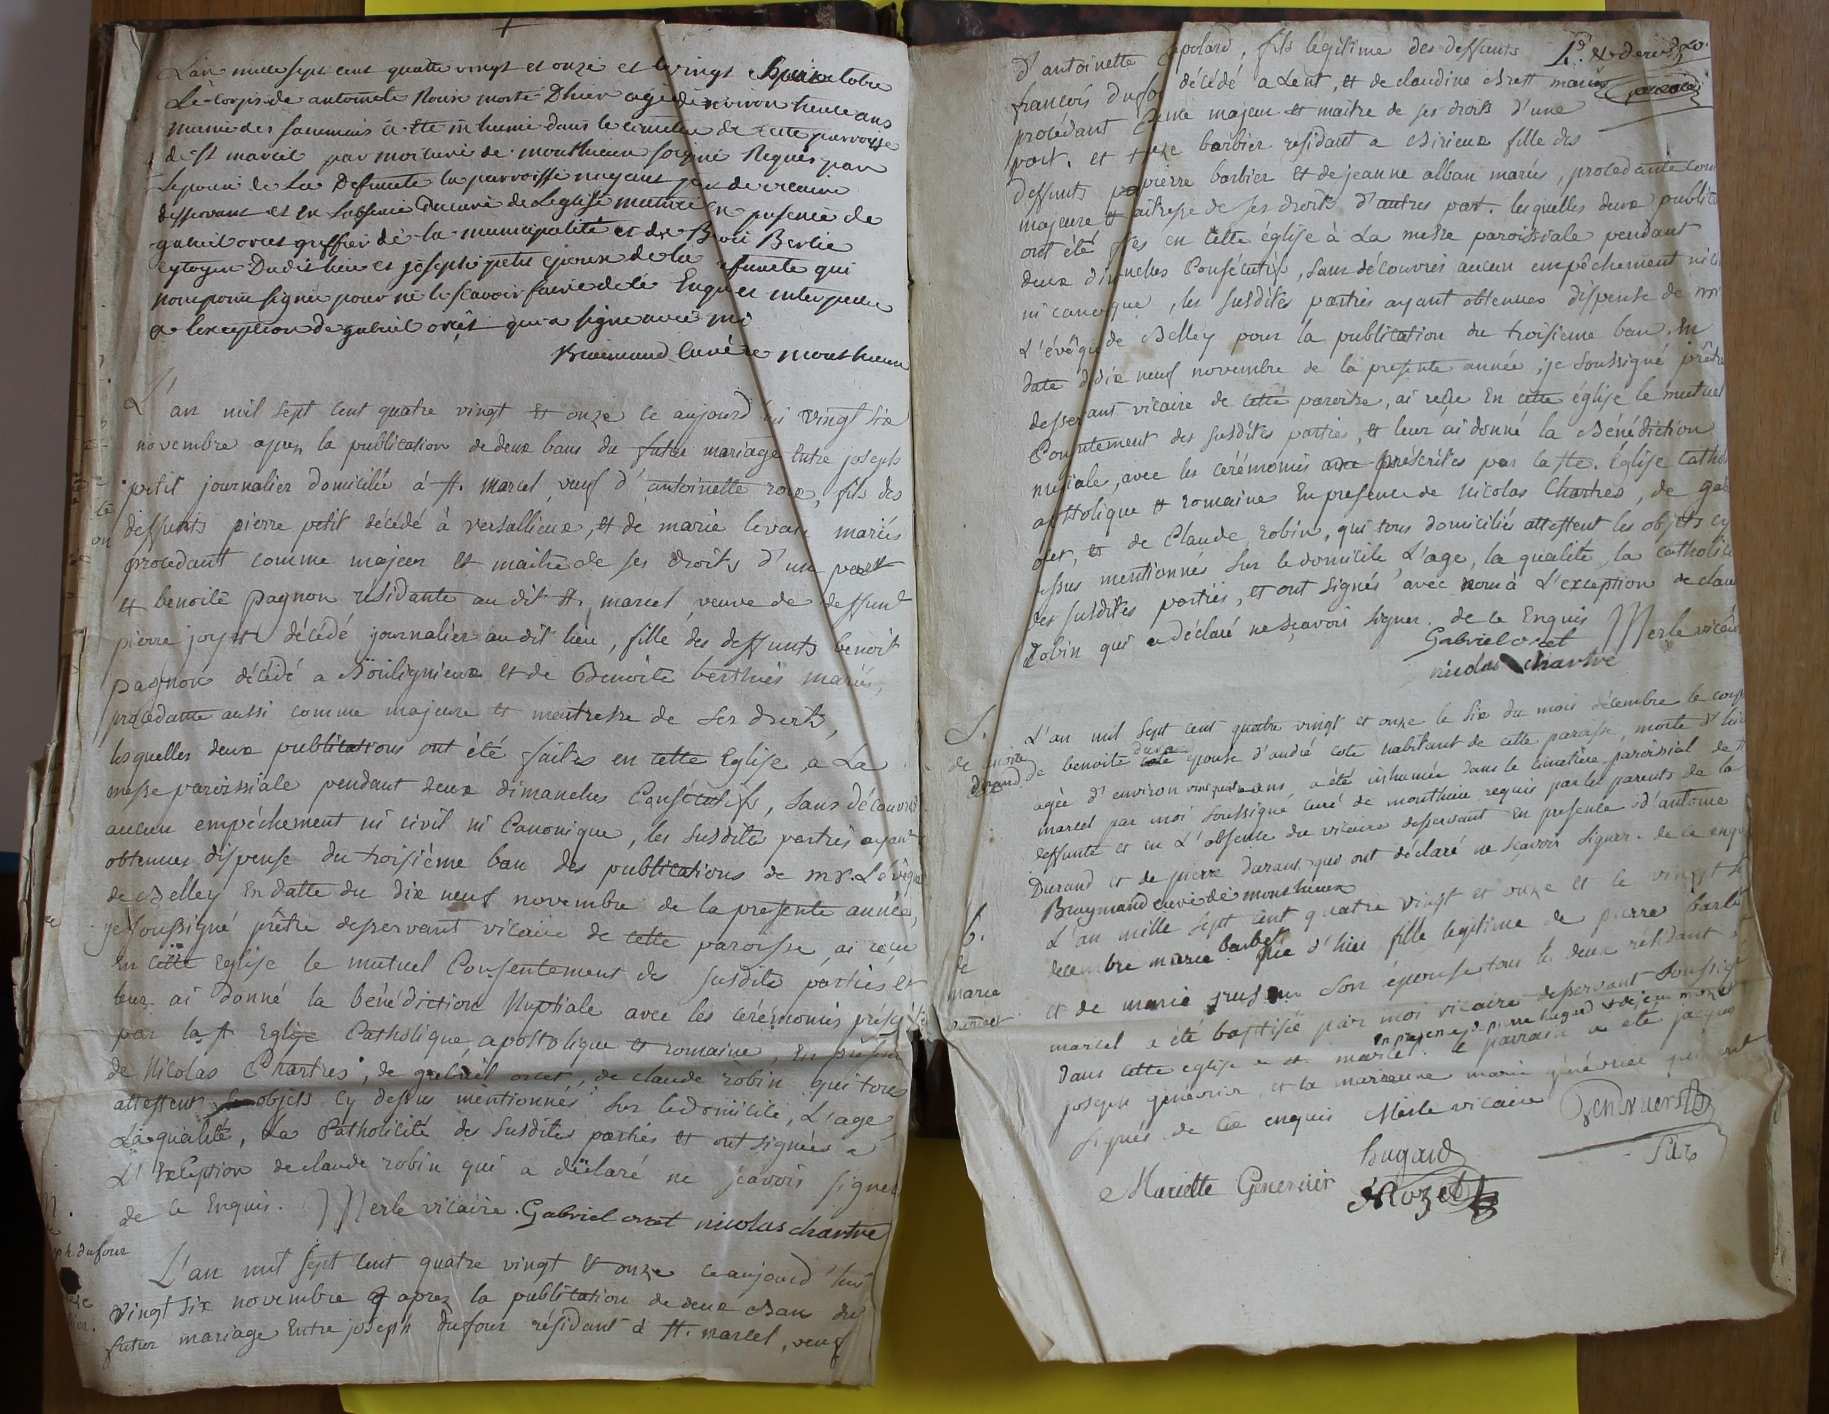 L'an mille sept cent quatre vingt et onze et le vingt octobre
Le corps de antoinete Roux morte D'hier agé de environ trente ans
munie des sacremens a ete inhumé dans le cimetiere de cette parroisse
de st marcel par moi curé de monthieux soigné Requis par
Lepoux de La Defunete la parroisse nayant
desservant et en Labsence Ducuré de Leglise en presence de
gabriel orcet greffier de la municipalité et de Berlie
cytoyen Dudis lieu et joseph petit epoux de la defunete qui
nont point signé pour ne le scavoir faire de ce Enquis et interpellé
a lexception de gabriel orcet qui a signé avec moi
Braimand curé de monthieux
L'an mil sept cent quatre vingt et onze ce aujourd'hui vingt six
novembre apres la publication de deux bans du futur mariage entre joseph
petit journalier domicilié à st. marcel, veuf d'antoinette roux, fils des
deffunts pierre petit décédé à versallieux, et de marie levax mariés
procedant comme majeur et maitre de ses droits d'une part
et benoite pagnon résidante au dit st. marcel veuve de deffunt
pierre joyet décédé journalier au dit lieu, fille des deffunts benoit
pagnon décédé a Bouligneux et de Benoite berthier mariés,
procedante aussi comme majeure et maitresse de ses droits,
lesquelles deux publications ont été faites en cette Eglise, a La
messe paroissiale pendant deux dimanches Consécutifs, sans découvrir
aucun empêchement ni civil ni Canonique, les susdites parties ayant
obtenues dispense du troisième ban des publications de mr. Lévêque
de Belley En datte du dix neuf novembre de la presente année,
je soussigné prêtre desservant vicaire de cette paroisse, ai reçu
En cette eglise le mutuel Consentement des susdites parties et
leur ai donné la bénédiction Nuptiale avec les cérémonies préscrites
par la st Eglise Catholique, apostolique et romaine, En présence
de Nicolas Chartres, de gabriel orcet, de claude robin qui tous
attestent les objets Cy dessus mentionnés sur le domicile, L'age,
La qualité, La Catholicité des susdites parties et ont signées a
L'Exception de claude robin qui a déclaré ne sçavoir signer
de ce Enquis. Merle vicaire. Gabriel orcet nicolas chartre
ph. dufour
L'an mil sept cent quatre vingt et onze ce aujourd'hui
vingt six novembre et aprez la publication de deux Bans du
futur mariage Entre joseph Dufour résidant à st. marcel, veuf
d'antoinette polard, fils légitime des deffunts
françois dufour décédé a Lent, et de claudine Brett mariés
procédant Comme majeur et maitre de ses droits d'une
part. et barbier résidant a Birieux fille des
deffunts pierre barbier et de jeanne alban mariés, procedante com
majeure et maitresse de ses droits d'autres part. lesquelles deux publica
ont été faites en Cette église à La messe paroissiale pendant
deux dimanches Consécutifs, sans découvrir aucun empêchement ni ci
ni canonique, les susdites parties ayant obtenues dispense de mr
L'évêque de Belley pour la publication du troisieme ban. En
date du dix neuf novembre de la presente année, je soussigné prêtre
desservant vicaire de cette paroisse, ai reçu En cette église le mutuel
Consentement des susdites parties, et leur ai donné la Bénédiction
nuptiale, avec les cérémonies préscrites par la ste. Eglise Catho
apostolique et romaine En presence de Nicolas Chartres, de gab
orcet, et de Claude robin, qui tous domiciliés attestent les objets cy
dessus mentionnés sur le domicile L'age, la qualité, la catholici
des susdites parties, et ont signés avec nous à L'exception de clau
robin qui a déclaré ne sçavoir signer. de ce Enquis
Gabriel orcet Merle vicaire
nicolas chartre
S.
de benoite
durand
L'an mil sept cent quatre vingt et onze le six du mois décembre le corps
de benoite épouse d'andré cote habitant de cette paroisse, morte d'hier
agée d'environ ans, a été inhumée dans le cimetière paroissial de st
marcel par moi soussigné curé de monthieux requis par les parents de la
deffunte et en L'absence du vicaire desservant En presence d'antoine
Durand et de pierre durant qui ont déclaré ne sçavoir signer. de ce enquis
Braymand curé de monthieux
b.
de
marie
barbet
L'an mille sept cent quatre vingt et onze et le vingt
décembre marie barbet née d'hier fille legitime de pierre barbet
et de marie son épouse tous les deux résidant st
marcel a été baptisée par moi vicaire desservant soussigné
dans cette eglise de st marcel. En presence de pierre hugard et de jean mozet
le parrain a été jacque
joseph génévrier, et la marrenne marie génévriere qui ont
signés de Ce enquis Merle vicaire Genevrier
hugard
Mariette Genevrier Mozet